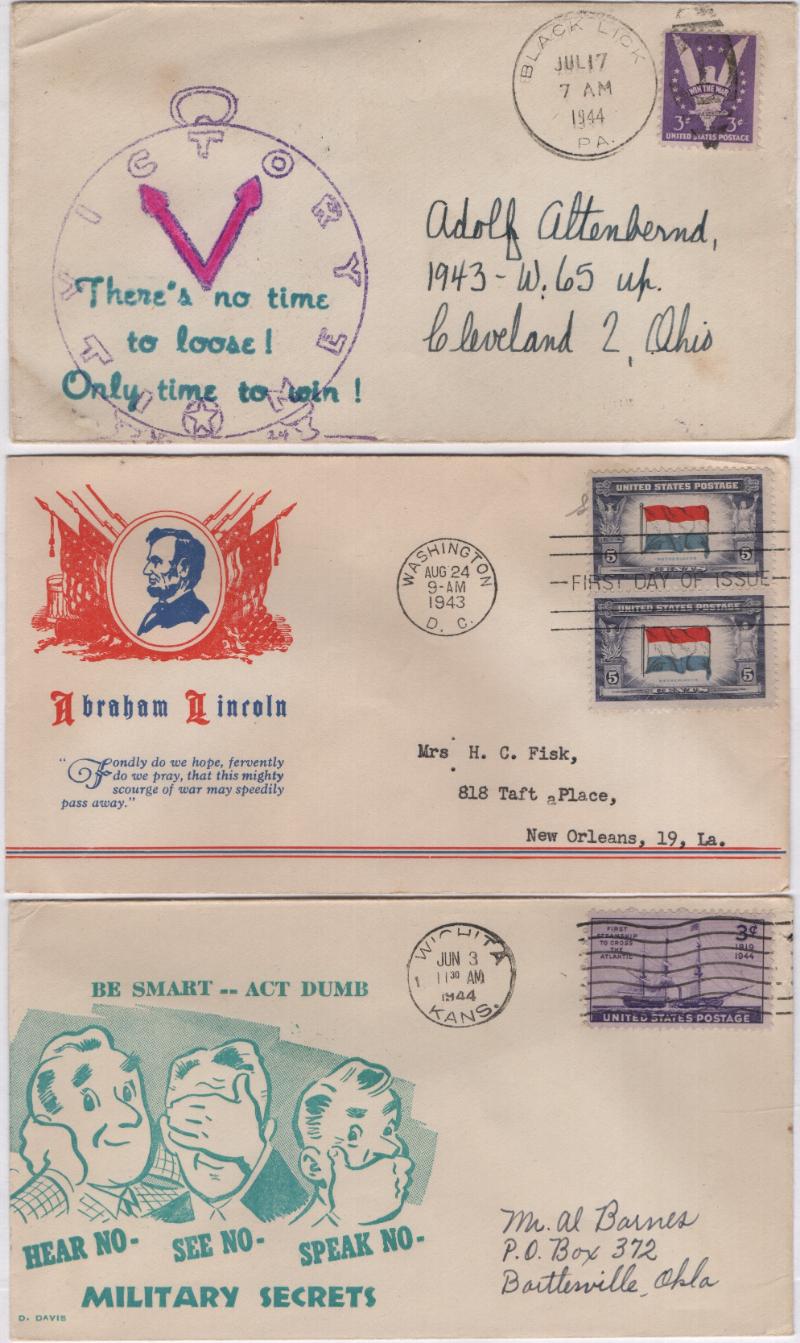 BLACK LICK
JUL 17
7 AM
1944
PA.
WIN THE WAR
3¢ 3¢
UNITED STATES POSTAGE
VICTORY TIME
There's no time
to loose!
Only time to win!
24
Adolf Altenbernd,
1943 - W. 65 up.
Cleveland 2, Ohio
Abraham Lincoln
"Fondly do we hope, fervently
do we pray, that this mighty
scourge of war may speedily
pass away."
WASHINGTON
AUG 24
9-AM
1943
D. C.
UNITED STATES POSTAGE
NETHERLANDS
5 5
CENTS
FIRST DAY OF ISSUE
UNITED STATES POSTAGE
NETHERLANDS
5 5
CENTS
Mrs H. C. Fisk,
818 Taft aPlace,
New Orleans, 19, La.
BE SMART -- ACT DUMB
HEAR NO- SEE NO- SPEAK NO-
MILITARY SECRETS
D. DAVIS
WICHITA
JUN 3
1 11 30 AM
1944
KANS.
FIRST
STEAMSHIP
TO CROSS
THE
ATLANTIC
3¢
1819
1944
UNITED STATES POSTAGE
Mr. Al Barnes
P.O. Box 372
Bartlesville, Okla